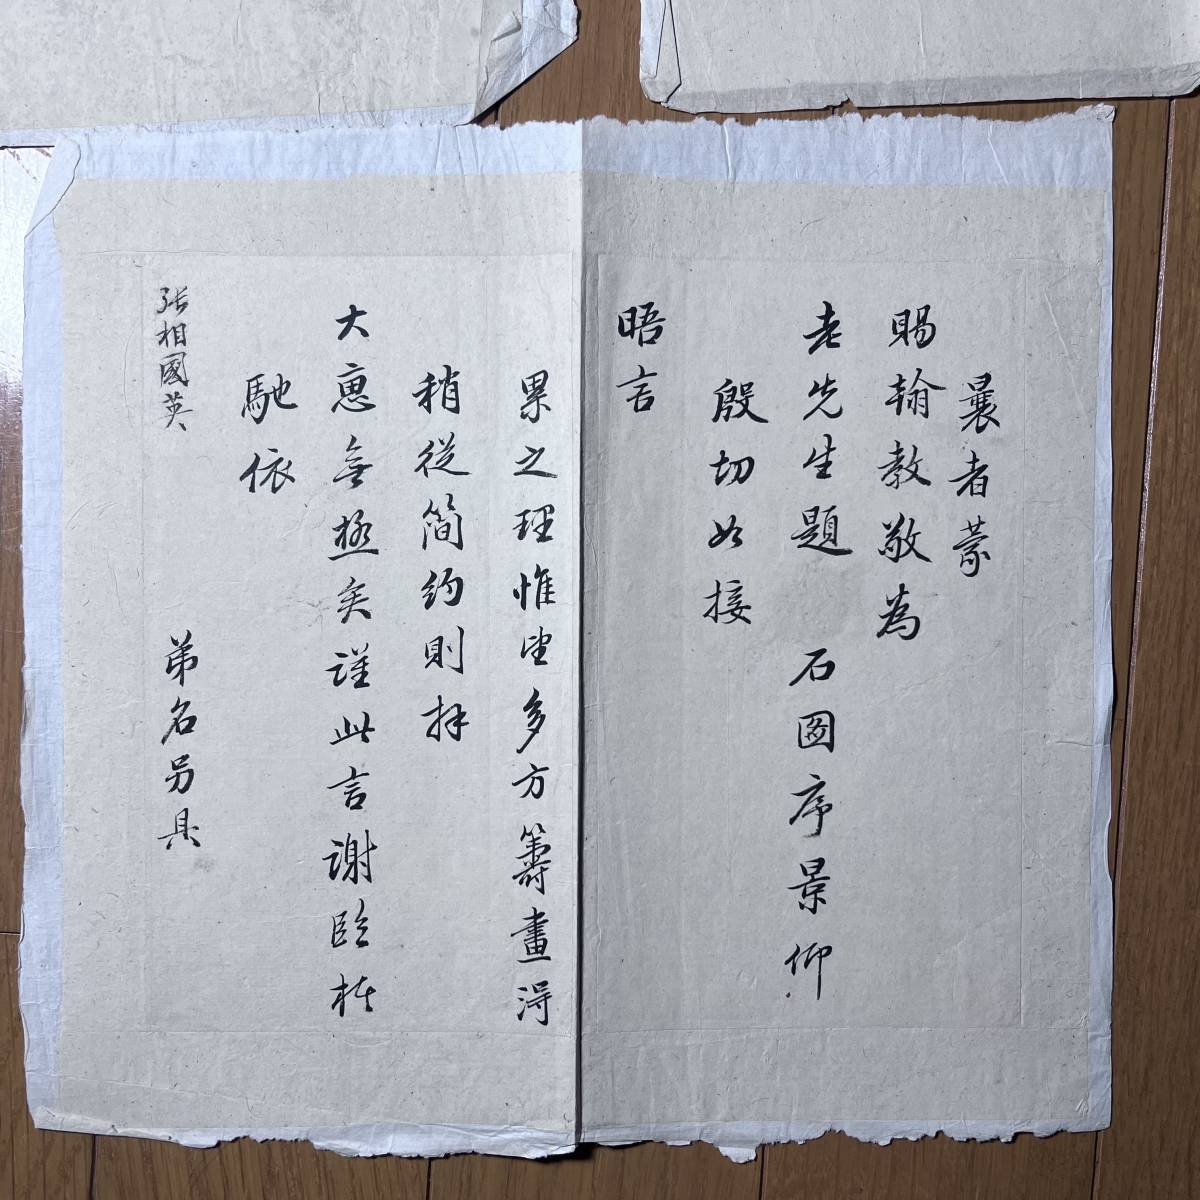 曩者蒙
賜翰教敬為
老先生題 石圖序景仰
殷切如接
晤言
累之理惟望多方籌畫得
稍從简約則拜
大惠無極矣謹此言謝臨楮
馳依
弟名另具
張相國英